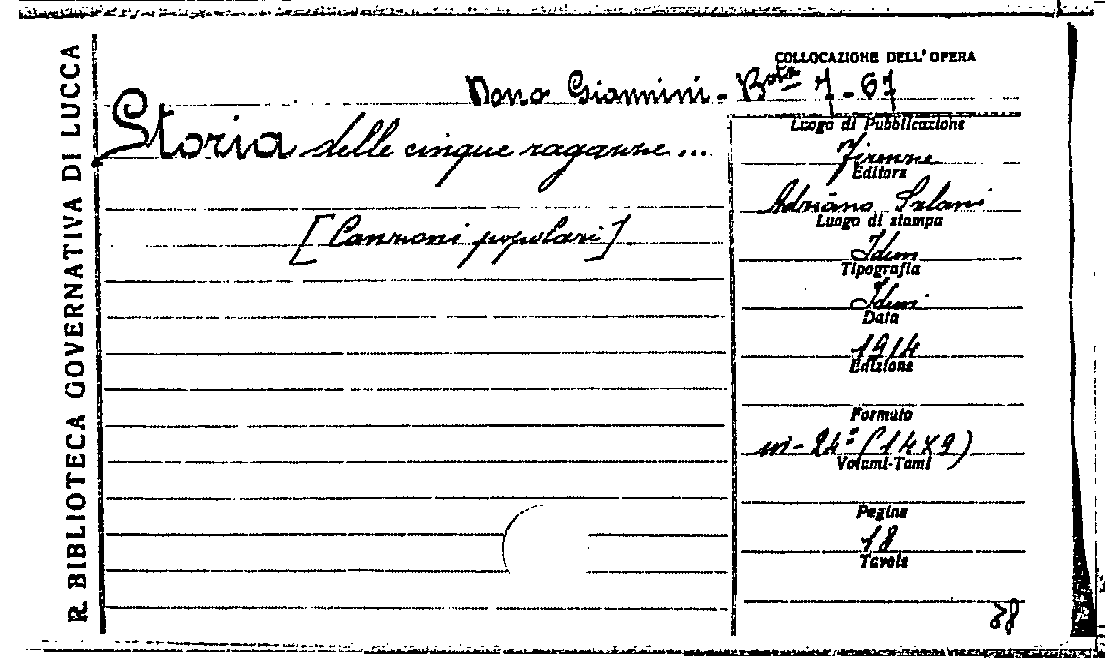 R. BIBLIOTECA GOVERNATIVA DI LUCCA
COLLOCAZIONE DELL' OPERA
Dono Giannini - Bta 7-67
Storia delle cinque ragazze...
[Canzoni popolari]
Luogo di Pubblicazione
Firenze
Editore
Adriano Salani
Luogo di stampa
Idem
Tipografia
Idem
Data
1914
Edizione
Formato
in-24° (14x9)
Volumi-Tomi
Pagine
18
Tavole